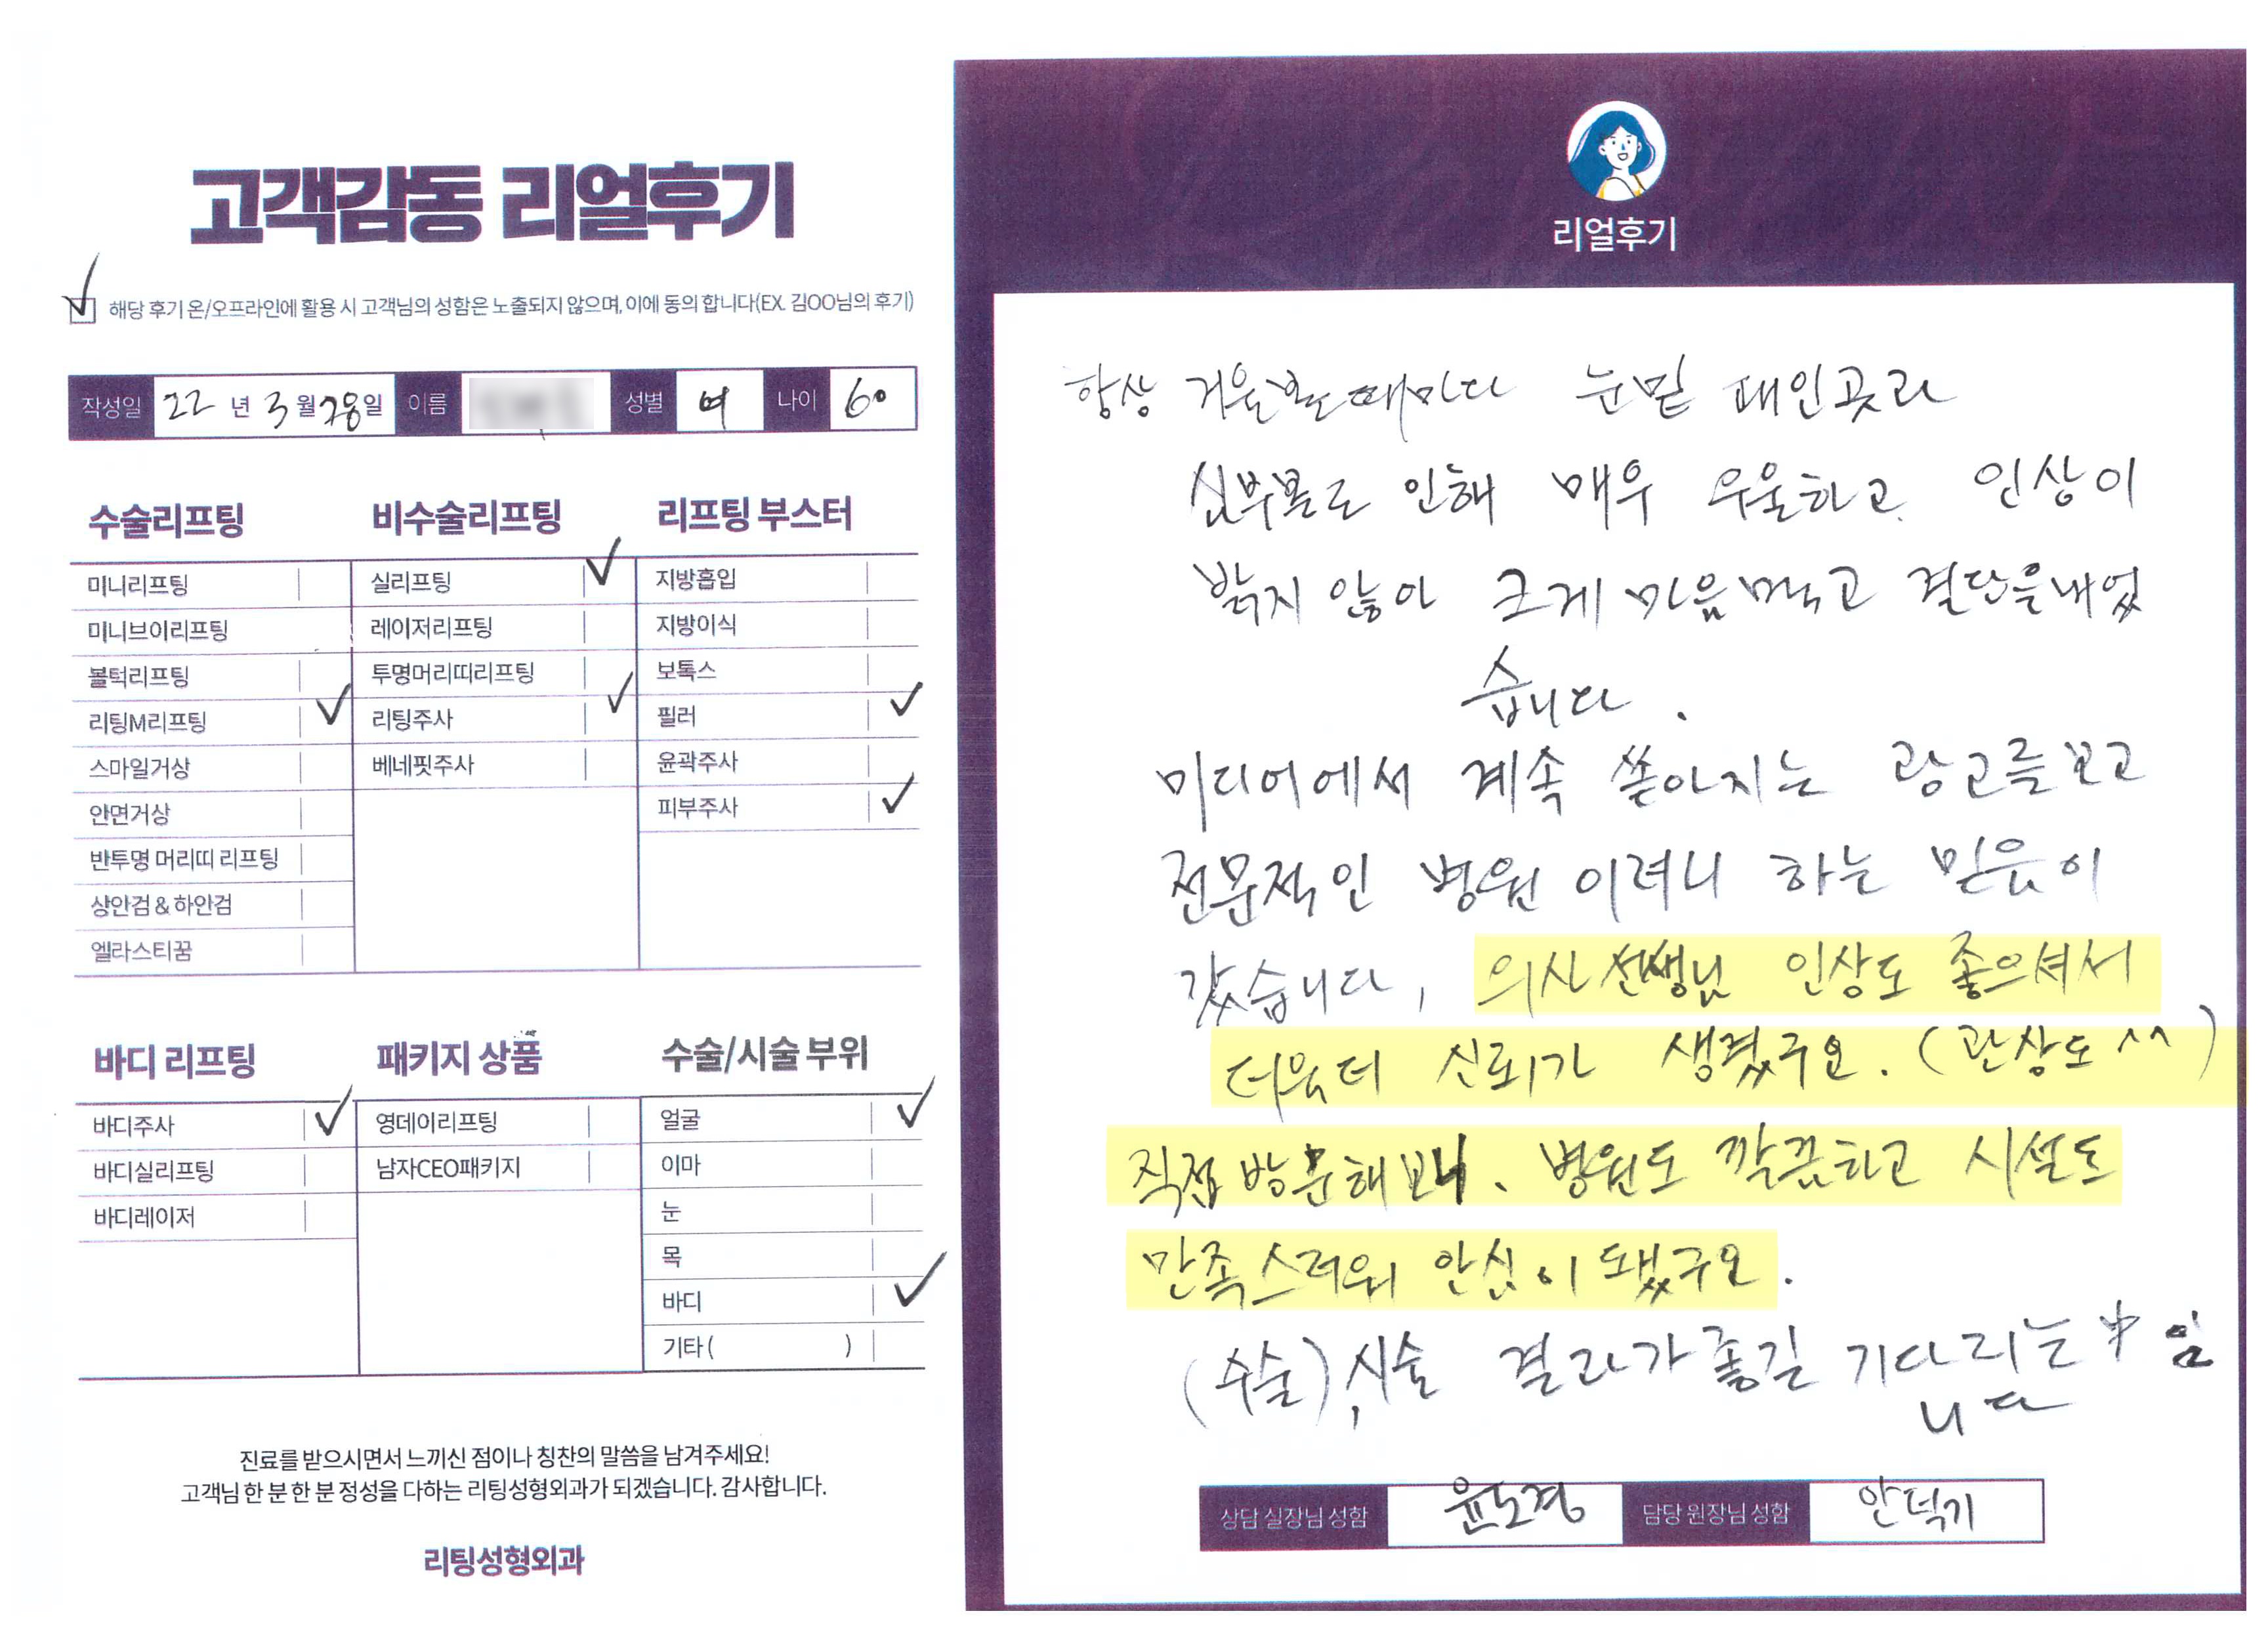 고객감동 리얼후기
✓ 해당 후기 온/오프라인에 활용 시 고객님의 성함은 노출되지 않으며, 이에 동의 합니다(EX. 김OO님의 후기)
작성일 22 년 3 월 28 일 이름 성별 여 나이 60
수술리프팅
미니리프팅
미니브이리프팅
볼턱리프팅
리팅M리프팅 ✓
스마일거상
안면거상
반투명 머리띠 리프팅
상안검 & 하안검
엘라스티꿈
비수술리프팅
실리프팅 ✓
레이저리프팅
투명머리띠리프팅
리팅주사 ✓
베네핏주사
리프팅 부스터
지방흡입
지방이식
보톡스
필러 ✓
윤곽주사
피부주사 ✓
바디 리프팅
바디주사 ✓
바디실리프팅
바디레이저
패키지 상품
영데이리프팅
남자CEO패키지
수술/시술 부위
얼굴 ✓
이마
눈
목
바디 ✓
기타 ( )
진료를 받으시면서 느끼신 점이나 칭찬의 말씀을 남겨주세요!
고객님 한 분 한 분 정성을 다하는 리팅성형외과가 되겠습니다. 감사합니다.
리팅성형외과
리얼후기
항상 거울볼때마다 눈밑 패인곳과
심부볼로 인해 매우 우울하고 인상이
밝지 않아 크게 마음먹고 결단을내었
습니다.
미디어에서 계속 쏟아지는 광고를보고
전문적인 병원 이려니 하는 믿음이
갔습니다, 의사선생님 인상도 좋으셔서
더욱더 신뢰가 생겼구요. (관상도^^)
직접방문해보니. 병원도 깔끔하고 시설도
만족스러워 안심이 됐구요.
(수술), 시술 결과가좋길 기다리는 中 임
니다
상담 실장님 성함 윤도경 담당 원장님 성함 안덕기